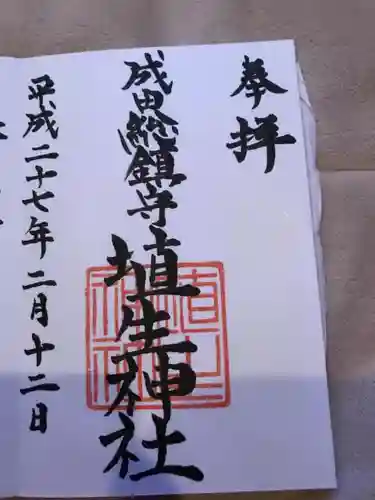 奉拝
成田総鎮守
埴生神社
平成二十七年二月十二日